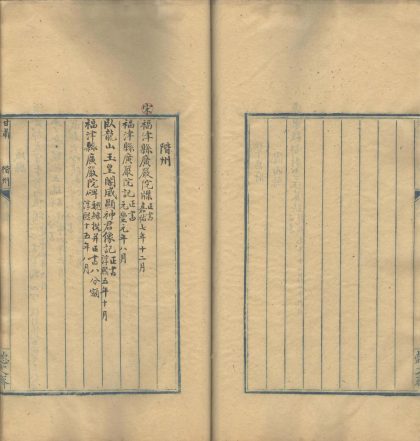 階州
宋福津縣廣嚴院牒正書嘉祐七年十二月
福津縣廣嚴院記正書元豐元年八月
臥龍山玉皇閣威顯神君像記正書淳熙五年十月
福津縣廣嚴院碑趙搏撰并正書八分額淳熙十五年八月
甘肅 階州